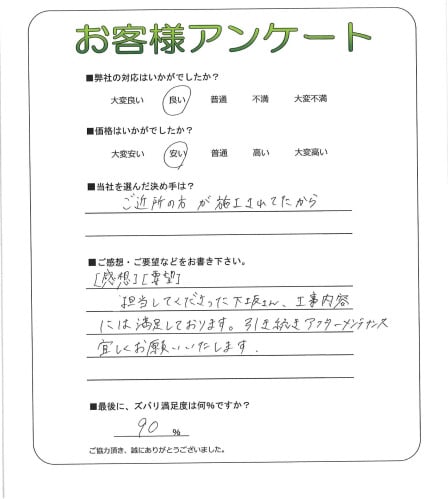 お客様アンケート
■弊社の対応はいかがでしたか?
大変良い 良い 普通 不満 大変不満
■価格はいかがでしたか?
大変安い 安い 普通 高い 大変高い
■当社を選んだ決め手は?
ご近所の方が施工されてたから
■ご感想・ご要望などをお書き下さい。
[感想][要望]
担当してくださった下坂さん、工事内容
には満足しております。引き続きアフターメンテナンス
宜しくお願いいたします.
■最後に、ズバリ満足度は何%ですか?
90 %
ご協力頂き、誠にありがとうございました。